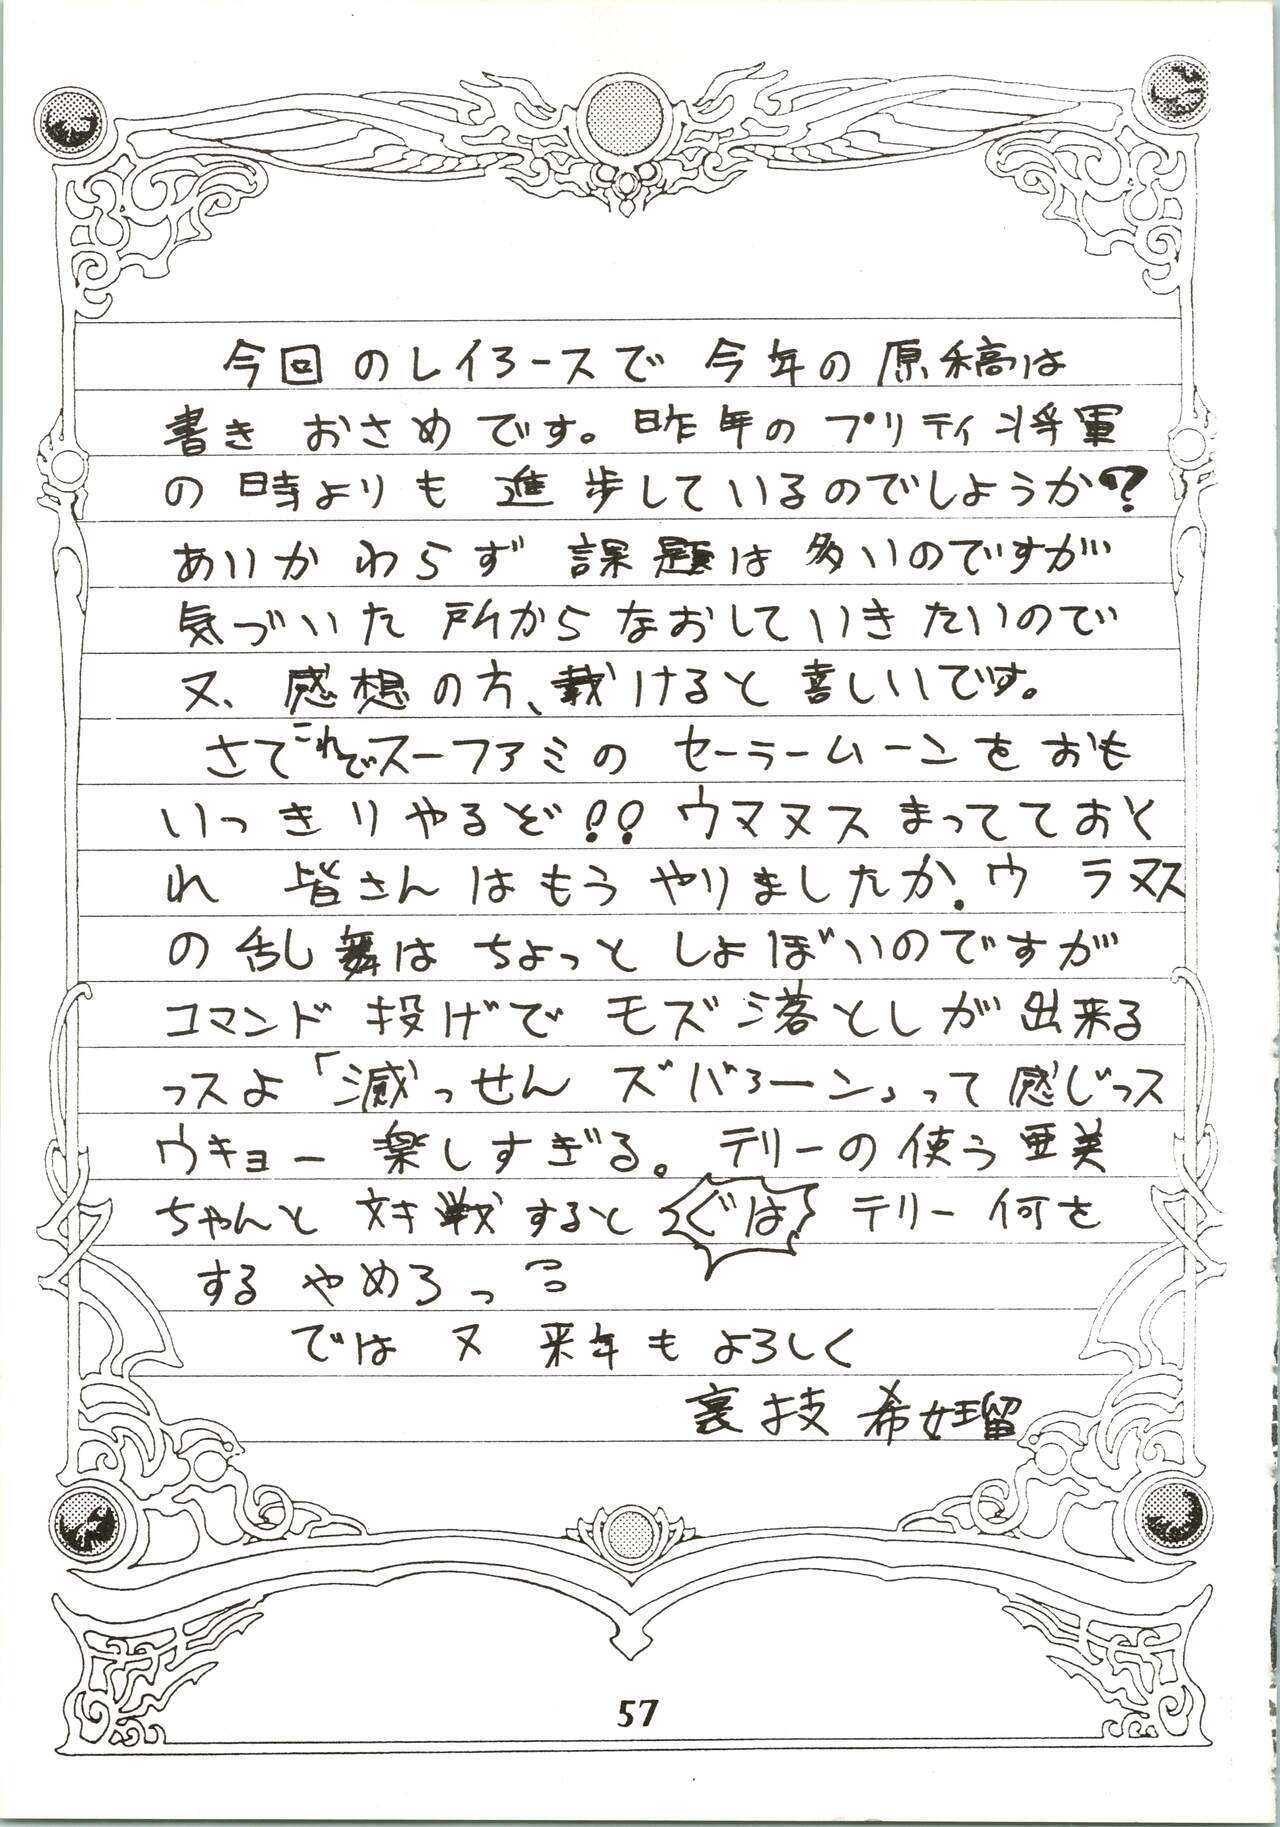 今回のレイろースで 今年の原稿は
書き おさめです。昨年のプリティ将軍
の時よりも 進歩しているのでしょうか?
あいかわらず 課題は多いのですが
気づいた所からなおしていきたいので
又、感想の方、載けると喜しいです。
さてこれでスーファミの セーラームーンをおも
いっきりやるぞ!! ウマヌス まってておく
れ 皆さんはもうやりましたか.ウラヌス
の乱舞はちょっとしょぼいのですが
コマンド投げでモズ落としが出来る
っスよ「滅っせん ズバろーン」って感じっス
ウキョー 楽しすぎる。テリーの使う亜美
ちゃんと 対戦すると ぐは テリー何を
する やめろっ
では 又 来年もよろしく
裏技 希妊瑠
57